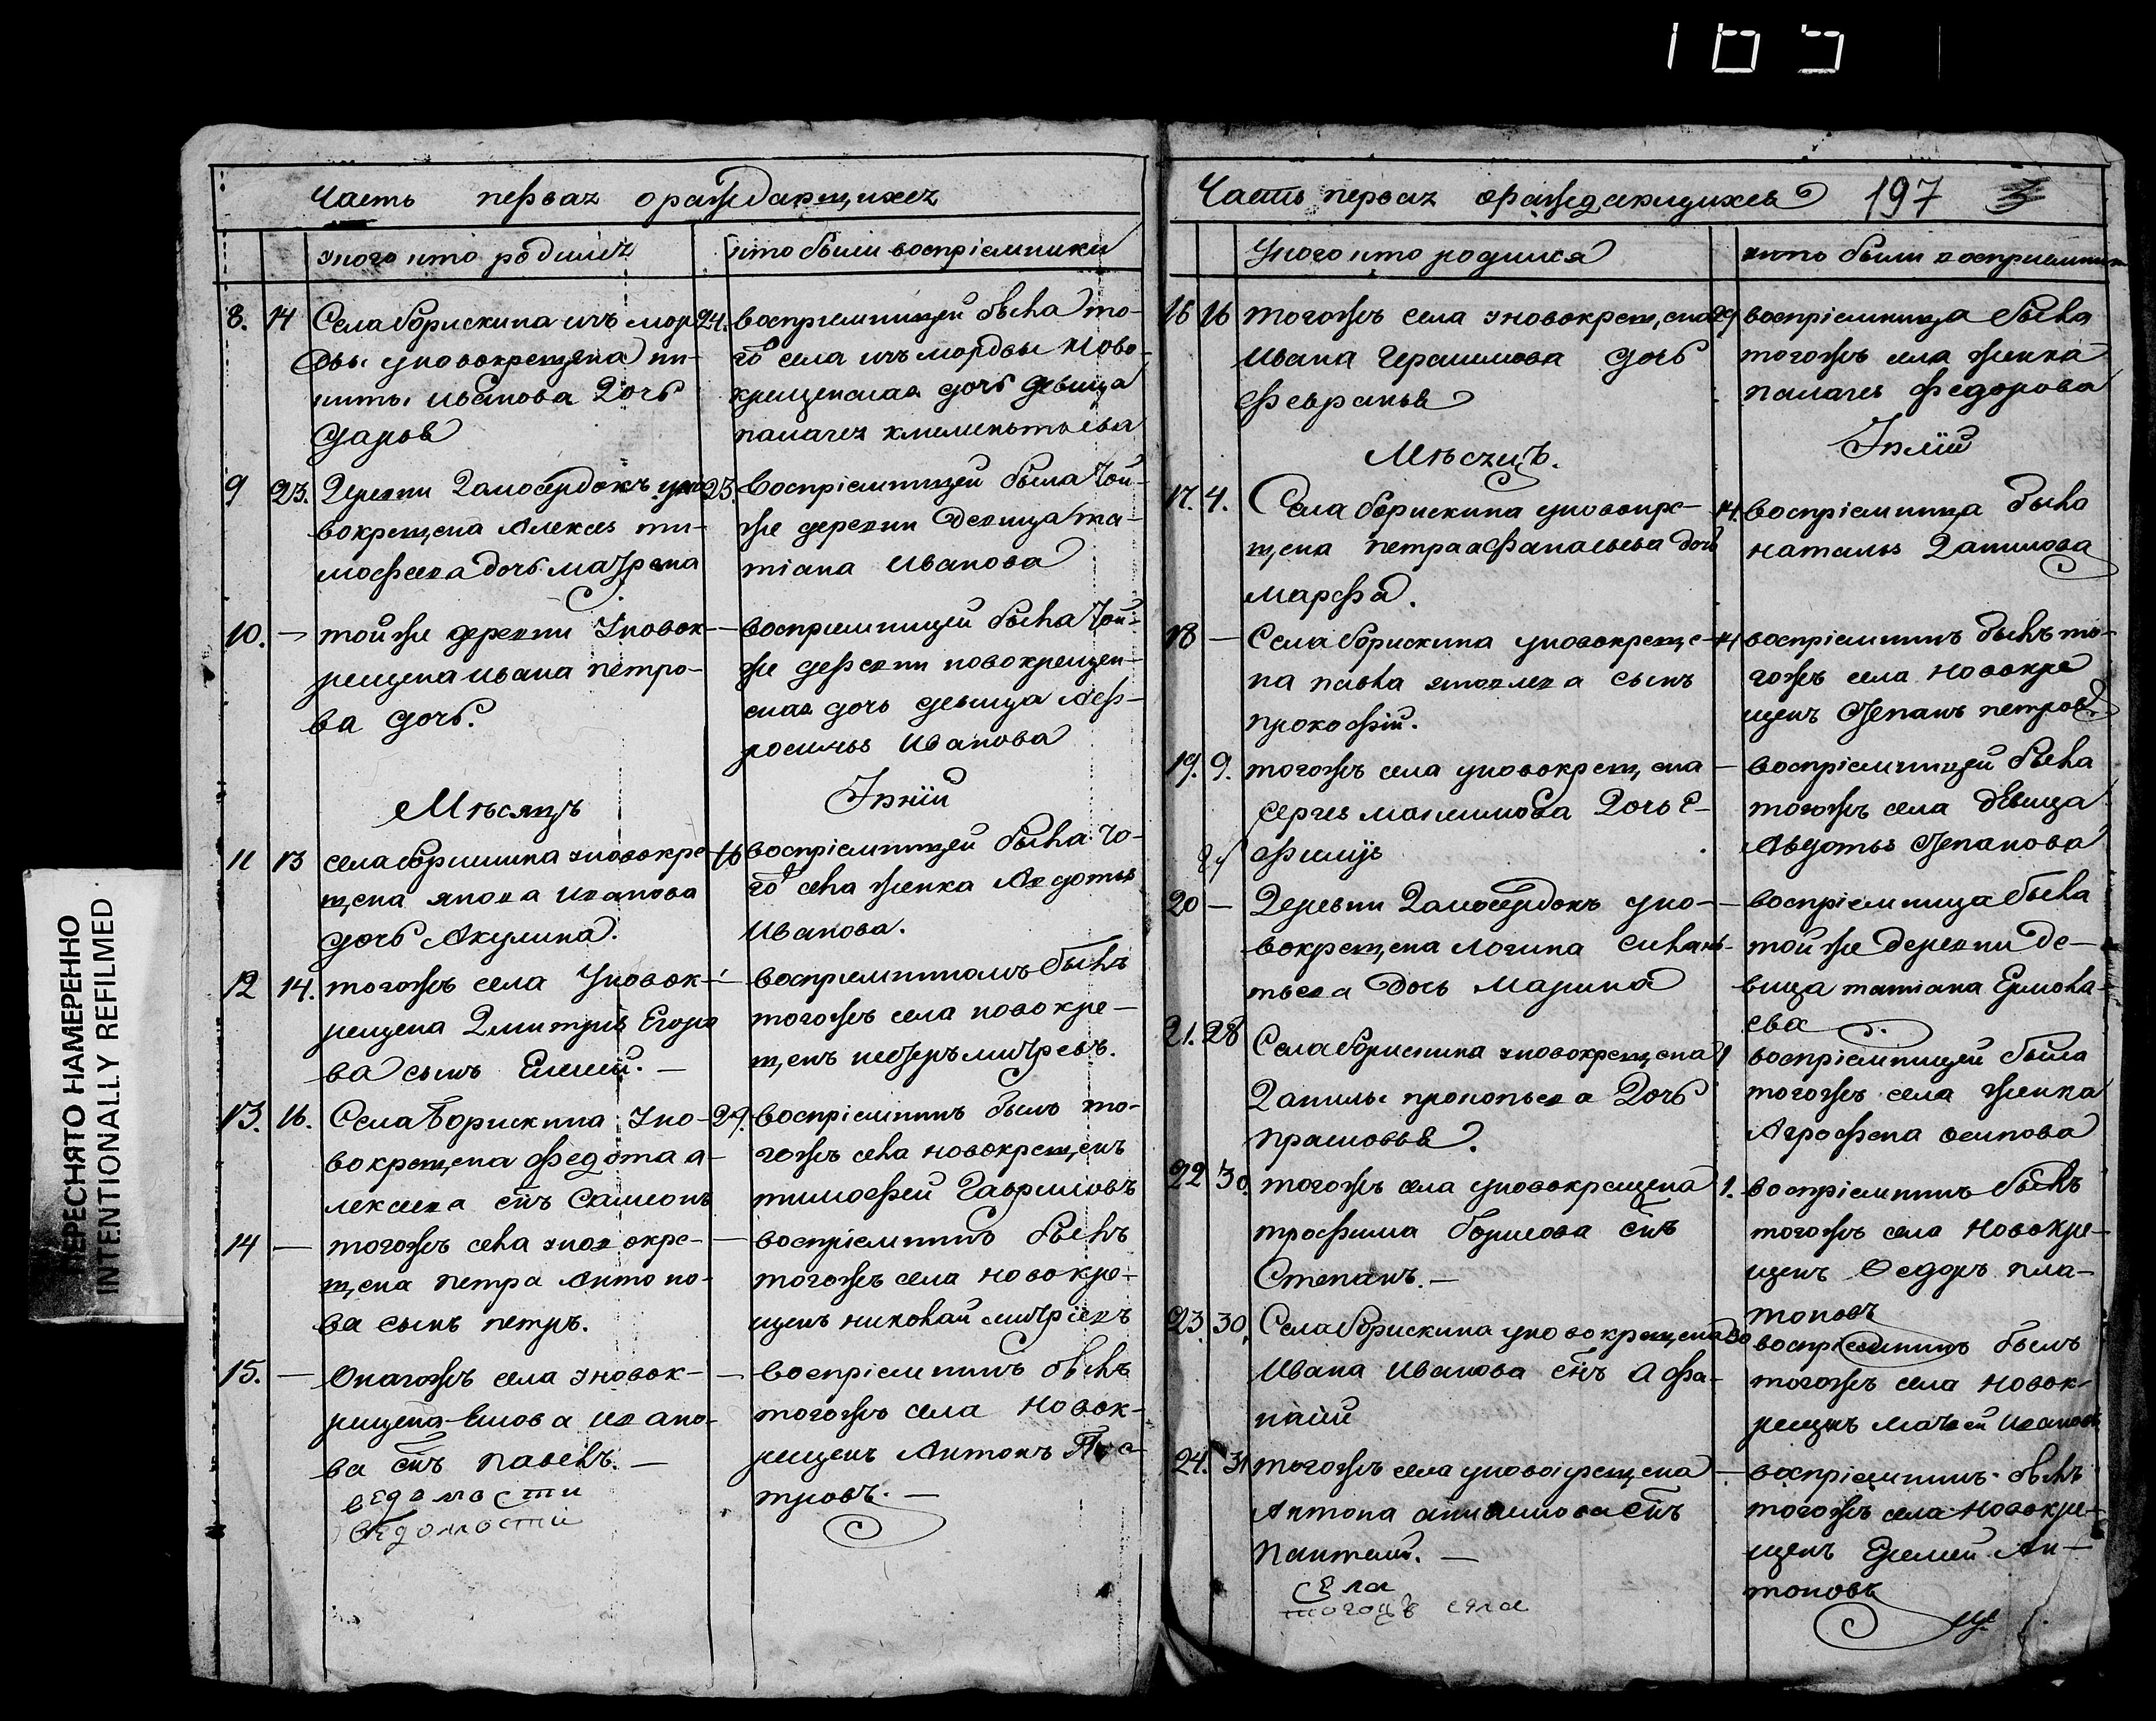 Часть первая ораждающихся
укого кто родился
кто были воспріемники
8. 14 Села борискина изъ мор-
двы уновокрещена ни-
киты иванова дочь
дарья
24. воспріемницей была то-
го села изъ мордвы ново-
крещенская дочь девица
палагея клементьева
9 23. Деревни Дамосердокъ уно-
вокрещена Алексея ти-
мофеева дочь матрена
23. Воспріемницей была той-
же деревни девица та-
тіана Иванова
10. — тойже деревни Уновок-
рещена ивана петро-
ва дочь.
— воспріемницей была той-
же деревни новокрещен-
ская дочь девица Меф-
росинья Иванова
Мѣсяцъ
Іюній
11 13 села борискина уновокре-
щена якова иванова
дочь Акулина.
16 воспріемницей была то-
го села женка Авдотья
Иванова.
12 14. тогожъ села Уновок-
рещена Дмитрия Егоро
ва сынъ Елисей. —
— воспріемникомъ былъ
тогожъ села новокре-
щенъ петръ митревъ.
13. 16. Села борискина Уно-
вокрещена федота а-
лексеева снъ Самсонъ
29. воспріемникъ былъ то-
гожъ села новокрещенъ
тимофей Гавриловъ
14 — тогожъ села уновокре-
щена петра Антоно-
ва сынъ петръ.
— воспріемникъ былъ
тогожъ села новокре-
щенъ николай митріевъ
15. — Онагожъ села уновок-
рещена якова ивано-
ва снъ павелъ. —
— воспріемникъ былъ
тогожъ села новок-
рещенъ Антонъ Пе-
тровъ. —
ведомости
ведомости
Часть первая ораждающихся 197
укого кто родился
кто были воспріемники
16 16 тогожъ села уновокрещена
Ивана Герасимова дочь
февранья
29 воспріемница была
тогожъ села женка
палагея федорова
Мѣсяцъ.
Іюлій
17. 4. Села борискина уновокре-
щена петра афанасьева дочь
марфа.
14. воспріемница была
наталья Данилова
18 — Села борискина уновокреще-
на павла яковлева сынъ
прокофій.
14 воспріемникъ былъ то-
гожъ села новокре
щенъ степанъ петровъ
19. 9. тогожъ села уновокрещена
сергея максимова дочь е-
фимія
— воспріемницей была
тогожъ села девица
Авдотья степанова
20 — Деревни Дамосердокъ уно-
вокрещена логина силань-
тьева дочь марина
— воспріемница была
тойже деревни де-
вица татіана Ермола-
ева
21. 28 Села борискина уновокрещена
Данилы прокопьева Дочь
прасковья.
1 воспріемницей была
тогожъ села женка
Агрофена осипова
22 30. тогожъ села уновокрещена
трофима борисова снъ
Степанъ. —
1. воспріемникъ былъ
тогожъ села новокре-
щенъ Федоръ пла-
тоновъ
23. 30. Села борискина уновокрещена
Ивана Иванова снъ Афа-
насий
30 воспріемникъ былъ
тогожъ села новок-
рещенъ матвей ивановъ
24. 31 тогожъ села уновокрещена
Антона снъ
пантелей. —
— воспріемникъ былъ
тогожъ села новокре-
щенъ Еремей Ан-
тоновъ
села
тогожъ села
ПЕРЕСНЯТО НАМЕРЕННО
INTENTIONALLY REFILMED